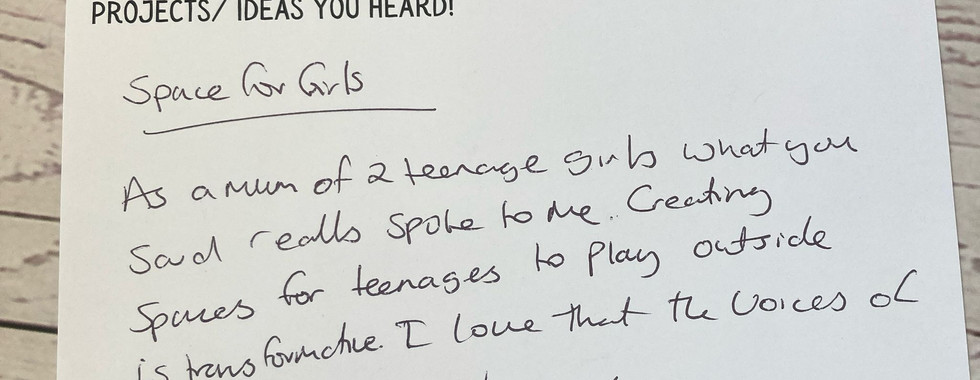 PROJECTS/ IDEAS YOU HEARD!
Space for Girls
As a mum of 2 teenage girls what you
said really spoke to me. Creating
Spaces for teenages to play outside
is transformative. I love that the voices of